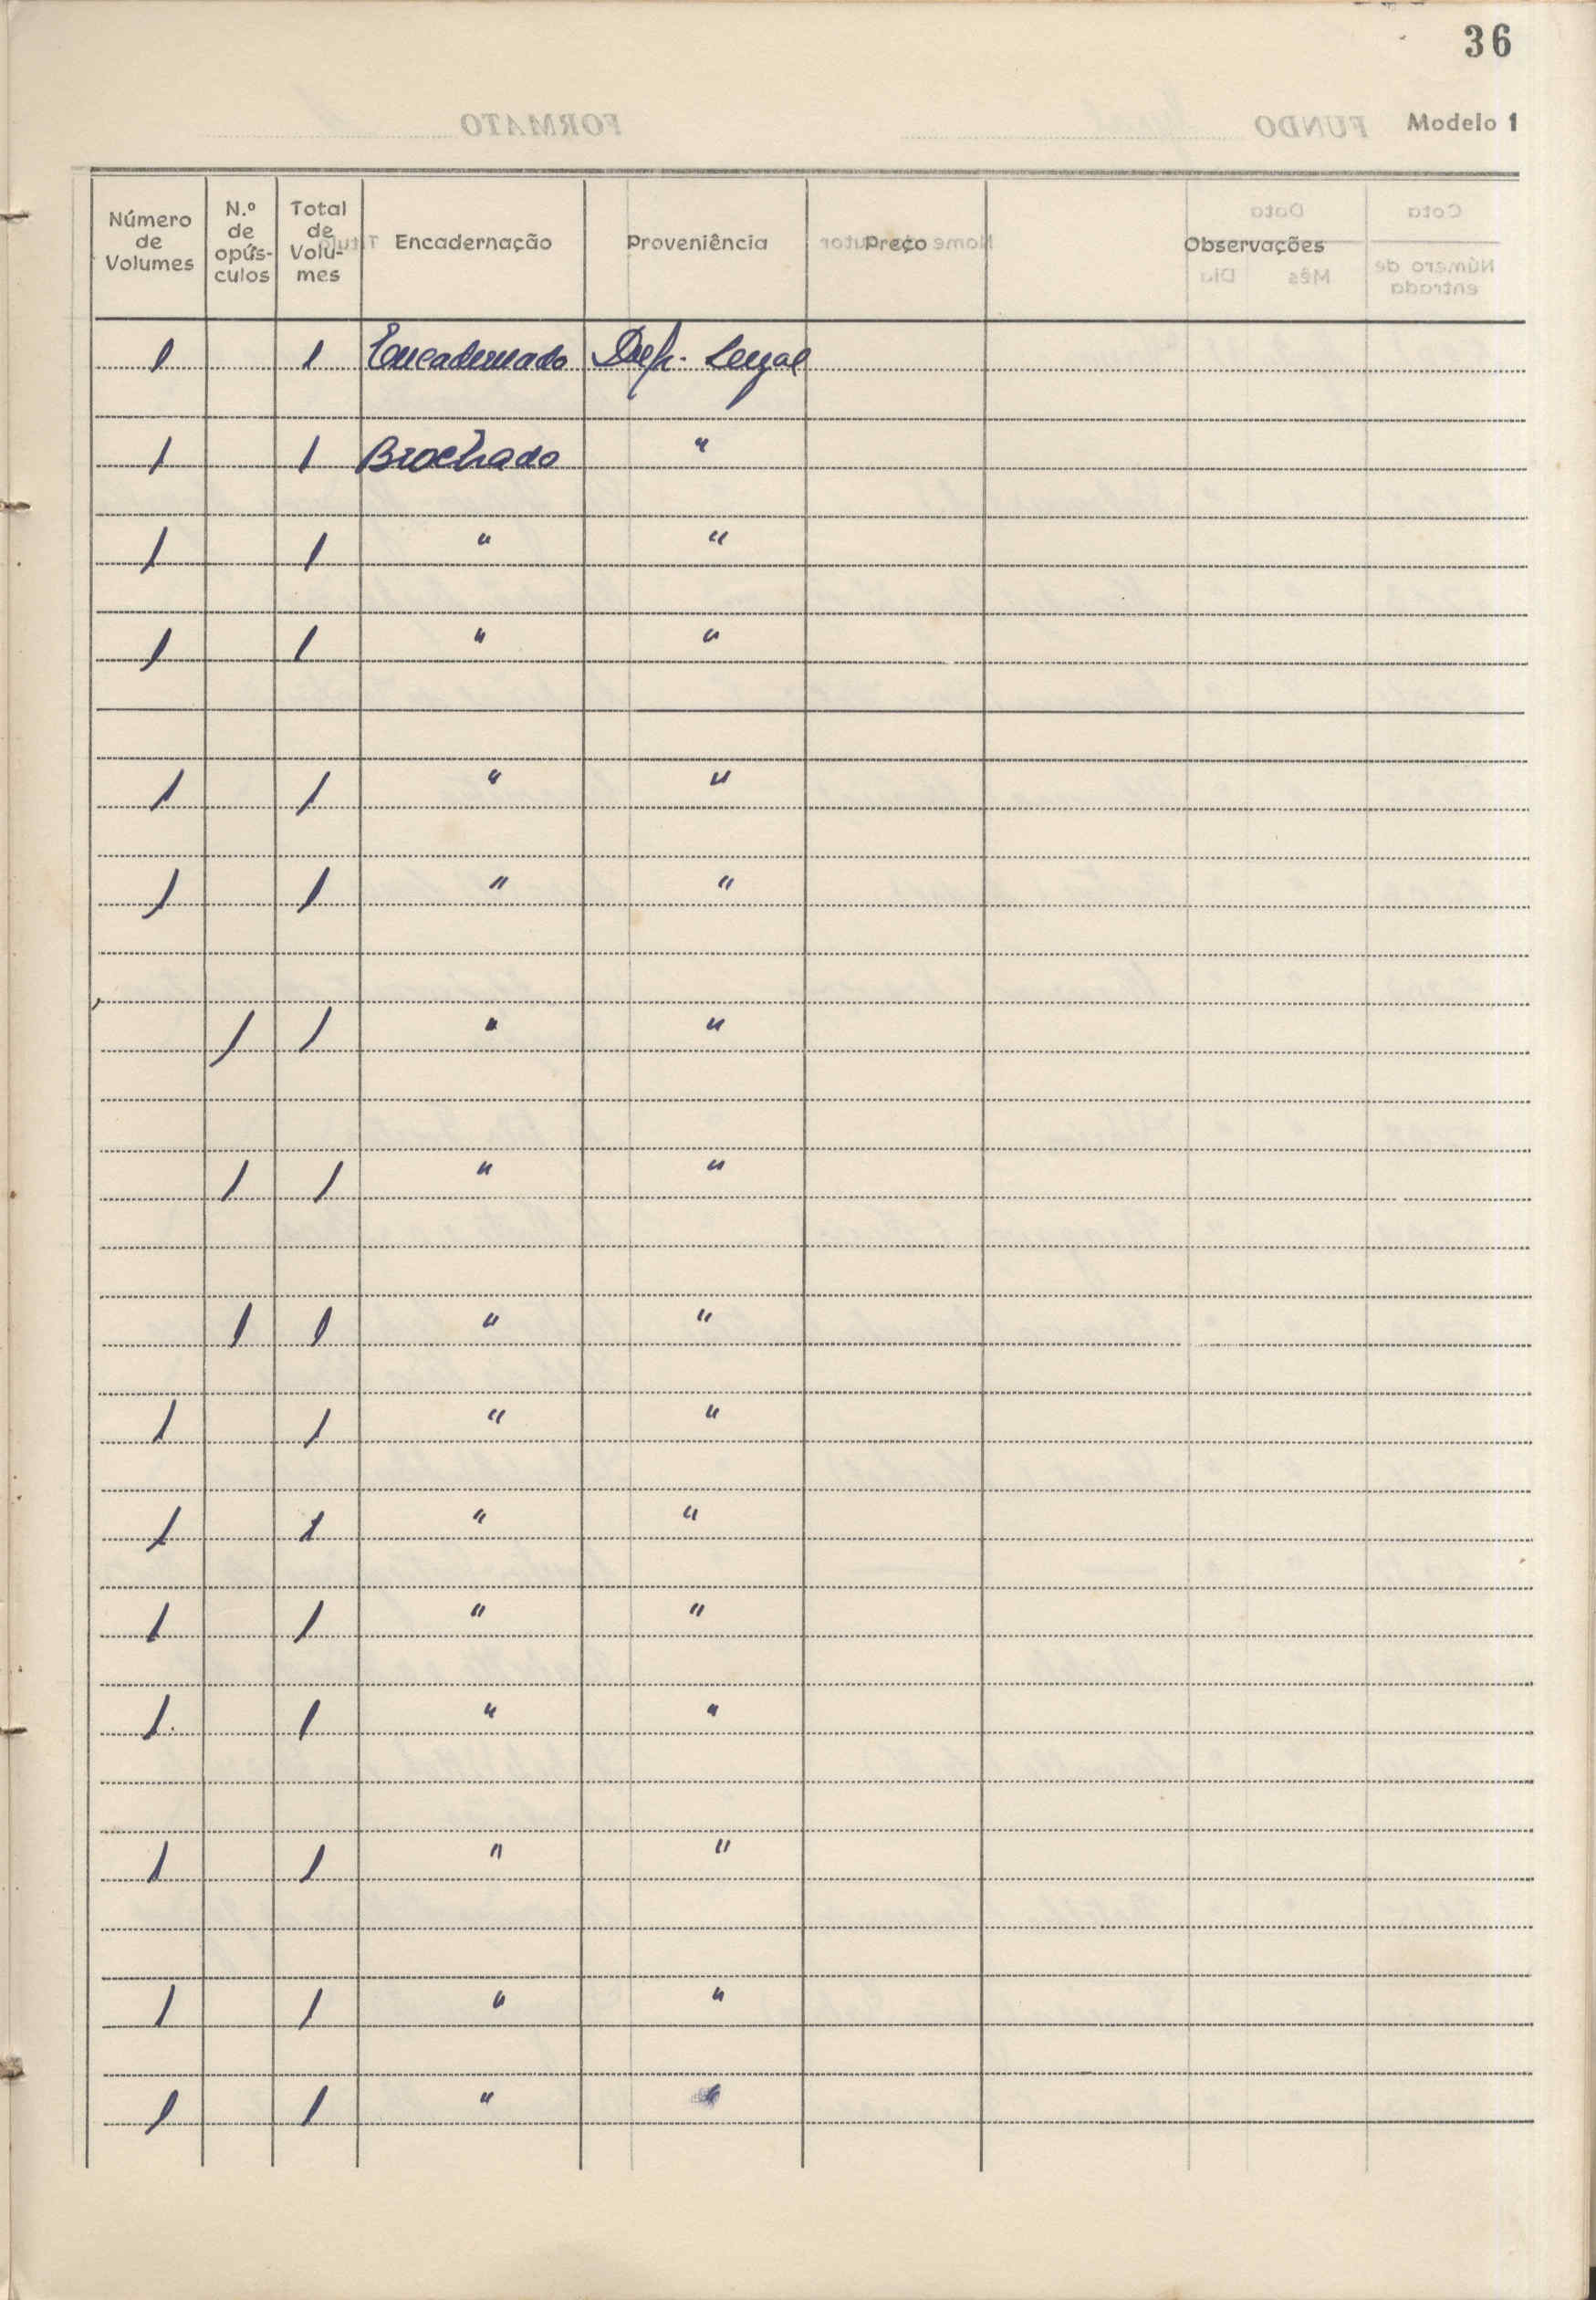 36
Modelo 1
Número de Volumes | N.º de opús-culos | Total de Volu-mes | Encadernação | Proveniência | Preço | Observações
1 | | 1 | Encadernado | Dep. Legal
1 | | 1 | Brochado | "
1 | | 1 | " | "
1 | | 1 | " | "
1 | | 1 | " | "
1 | | 1 | " | "
| 1 | 1 | " | "
| 1 | 1 | " | "
| 1 | 1 | " | "
1 | | 1 | " | "
1 | | 1 | " | "
1 | | 1 | " | "
1 | | 1 | " | "
1 | | 1 | " | "
1 | | 1 | " | "
1 | | 1 | " | "